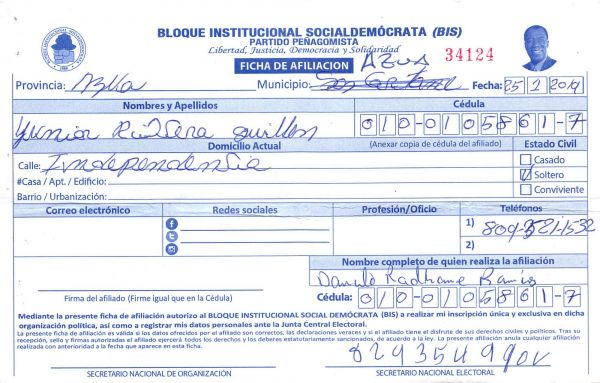 BLOQUE INSTITUCIONAL SOCIALDEMÓCRATA (BIS)
PARTIDO PEÑAGOMISTA
Libertad, Justicia, Democracia y Solidaridad
FICHA DE AFILIACION
AZUA
34124
Provincia: Azua
Municipio:
Fecha: 25 1 2019
Nombres y Apellidos
Cédula
Yunior
010-0105861-7
Domicilio Actual
(Anexar copia de cédula del afiliado)
Estado Civil
Calle: Independencia
Casado
#Casa / Apt. / Edificio:
Soltero
Barrio / Urbanización:
Conviviente
Correo electrónico
Redes sociales
Profesión/Oficio
Teléfonos
1) 809-521-1532
2)
Nombre completo de quien realiza la afiliación
Danilo Radhame Ramirez
Firma del afiliado (Firme igual que en la Cédula)
Cédula: 010-0105861-7
Mediante la presente ficha de afiliación autorizo al BLOQUE INSTITUCIONAL SOCIAL DEMÓCRATA (BIS) a realizar mi inscripción única y exclusiva en dicha
organización política, así como a registrar mis datos personales ante la Junta Central Electoral.
La presente ficha de afiliación es válida si los datos ofrecidos por el afiliado son correctos, las declaraciones veraces y si el afiliado tiene el disfrute de sus derechos civiles y políticos. Tras su
recepción, sello y firmas autorizadas el afiliado ejercerá todos los derechos y los deberes estatutariamente sancionados, de acuerdo a la ley. La presente afiliación anula cualquier afiliación
realizada con anterioridad a la fecha que aparece en esta ficha.
SECRETARIO NACIONAL DE ORGANIZACIÓN
SECRETARIO NACIONAL ELECTORAL